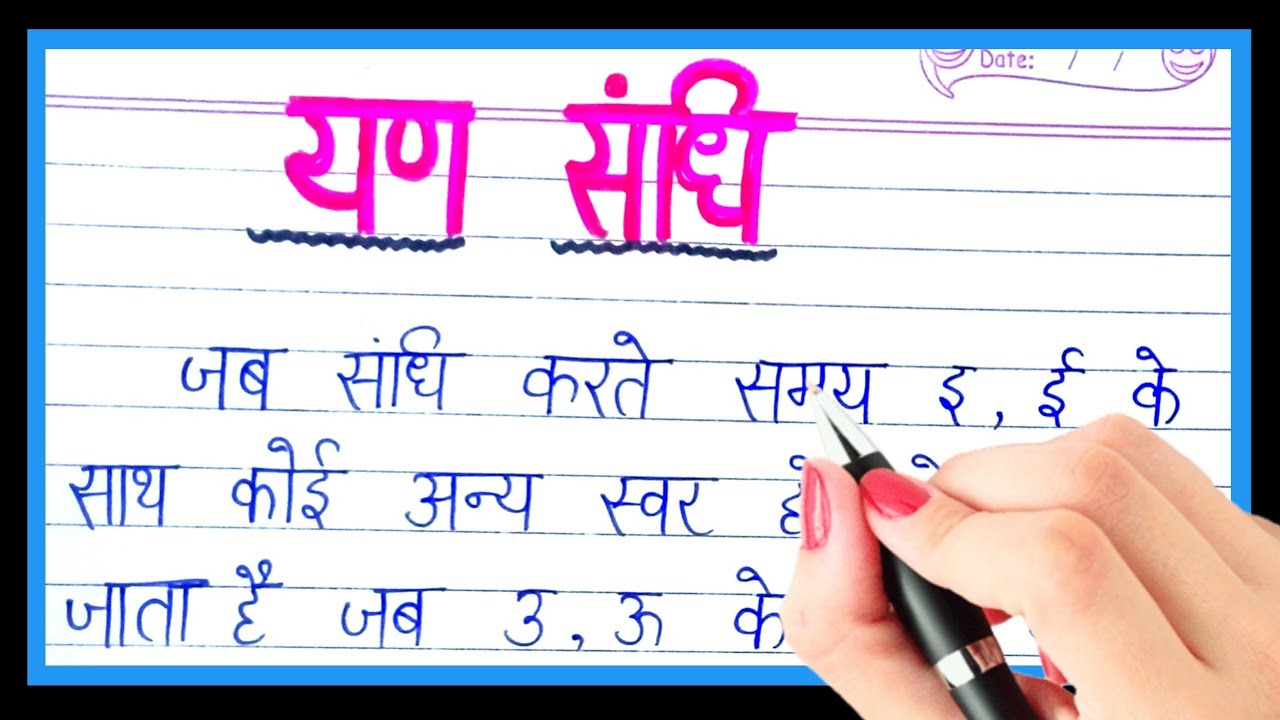 Date: / /
यण संधि
जब संधि करते समय इ, ई के
साथ कोई अन्य स्वर
जाता है जब उ, ऊ के